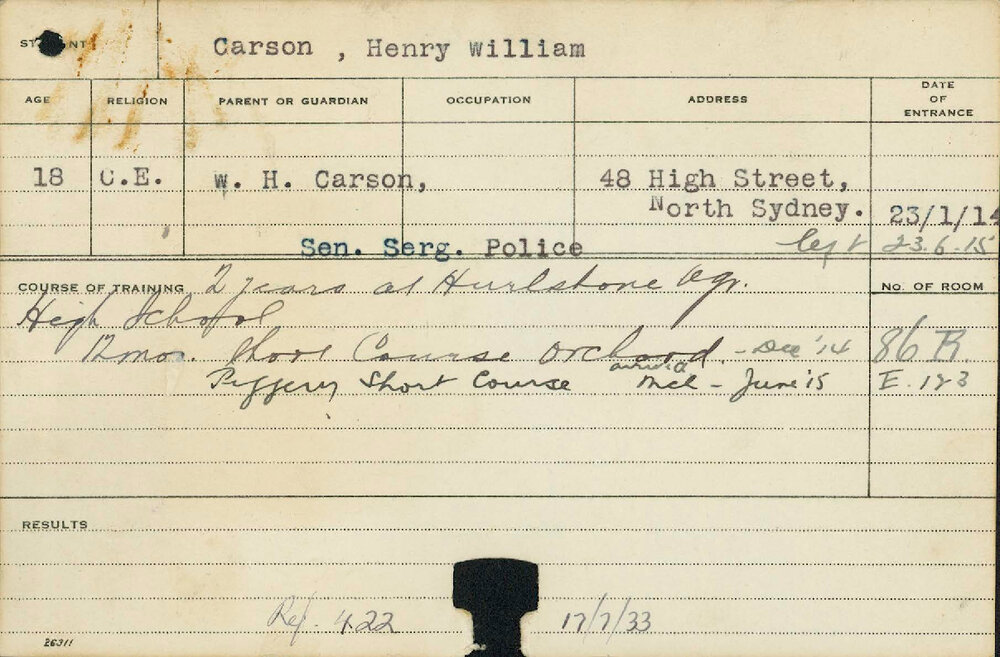 STUDENT Carson , Henry William
AGE RELIGION PARENT OR GUARDIAN OCCUPATION ADDRESS DATE OF ENTRANCE
18 C.E. W. H. Carson, 48 High Street,
North Sydney. 23/1/14
Sen. Serg. Police left 23.6.15
COURSE OF TRAINING 2 years at Hurlstone Agr. No. OF ROOM
High School
12 mos. Short Course Orchard - Dec '14 86 B
Piggery Short Course - June '15 E. 123
RESULTS
Ref. 422 17/7/33
26311